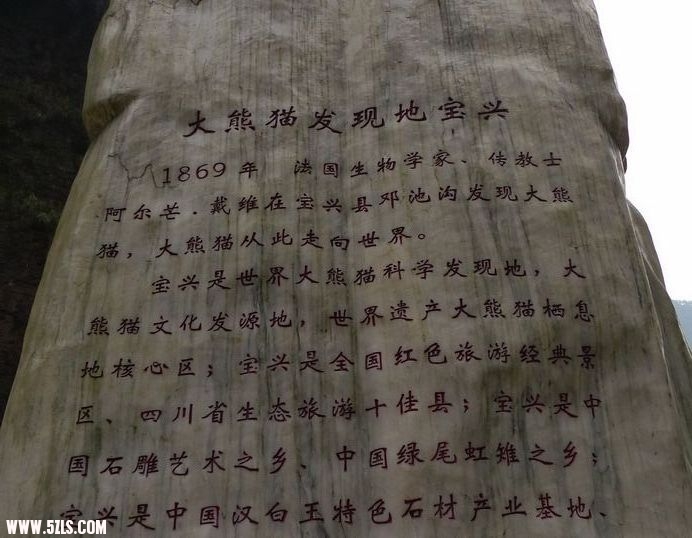 大熊猫发现地宝兴
1869年 法国生物学家、传教士
阿尔芒.戴维在宝兴县邓池沟发现大熊
猫，大熊猫从此走向世界。
宝兴是世界大熊猫科学发现地，大
熊猫文化发源地，世界遗产大熊猫栖息
地核心区；宝兴是全国红色旅游经典景
区、四川省生态旅游十佳县；宝兴是中
国石雕艺术之乡、中国绿尾虹雉之乡；
宝兴是中国汉白玉特色石材产业基地、
WWW.5ZLS.COM